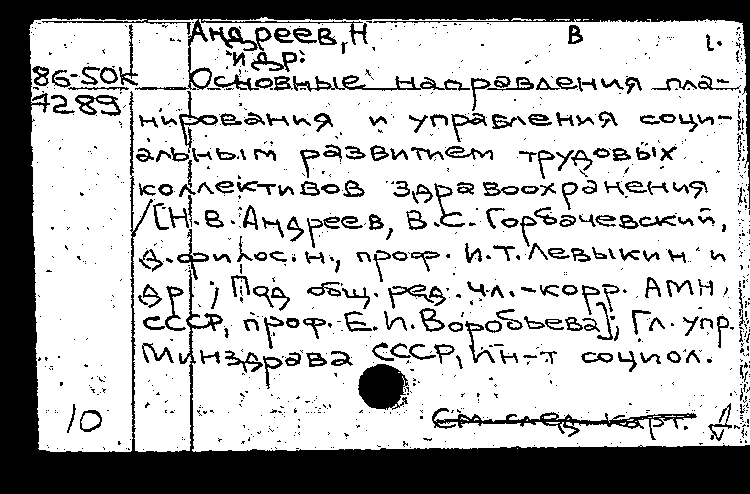 Андреев, Н В 1.
и др.
86-50к Основные направления пла-
4289
нирования и управления соци-
альным развитием трудовых
коллективов здравоохранения
/[Н.В.Андреев, В.С.Горбачевский,
д.филос.н., проф. И.Т.Левыкин и
др.; Под общ. ред. чл.-корр. АМН
СССР, проф. Е.И.Воробьева]; Гл. упр.
Минздрава СССР, Ин-т социол.
10 См след карт.